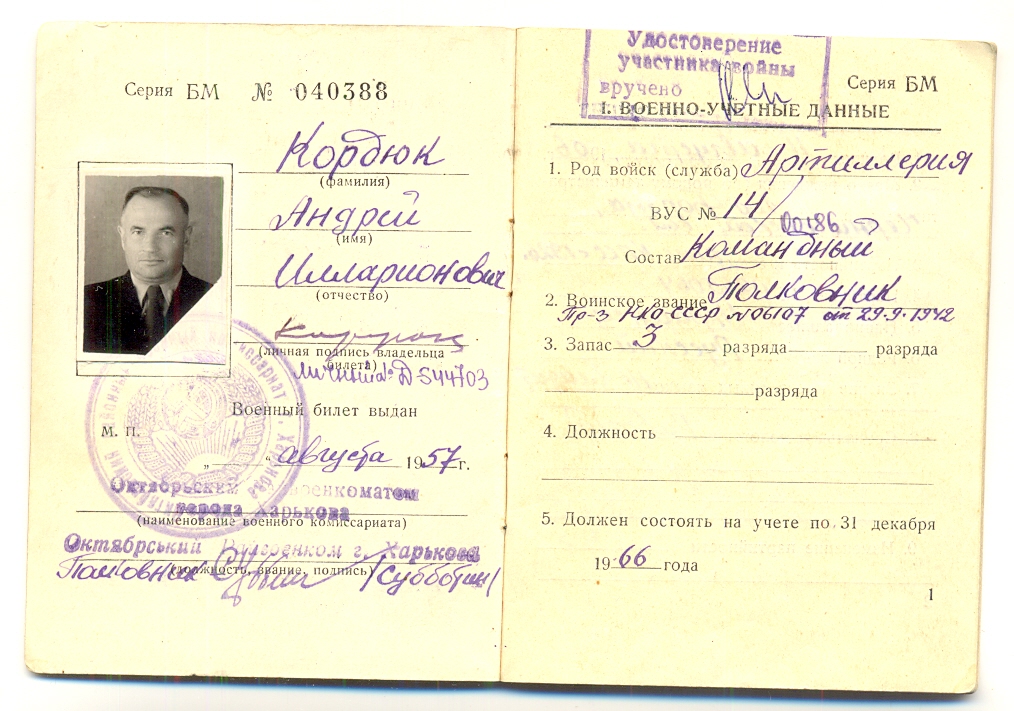 Серия БМ № 040388
Кордюк
(фамилия)
Андрей
(имя)
Илларионович
(отчество)
(личная подпись владельца
билета)
Личный № Д-544703
Военный билет выдан
М. П.
„ “ августа 1957 г.
Октябрьским военкоматом
города Харькова
(наименование военного комиссариата)
Октябрський Райвоенком г. Харькова
(должность, звание, подпись)
Полковник /Субботин/
Удостоверение
участника войны
вручено
Серия БМ
1. ВОЕННО-УЧЕТНЫЕ ДАННЫЕ
1. Род войск (служба) Артиллерия
ВУС № 14/
00186
Состав Командный
2. Воинское звание Полковник
Пр-з НКО СССР № 06107 от 29.9.1942
3. Запас 3 разряда разряда
разряда
4. Должность
5. Должен состоять на учете по 31 декабря
1966 года
1